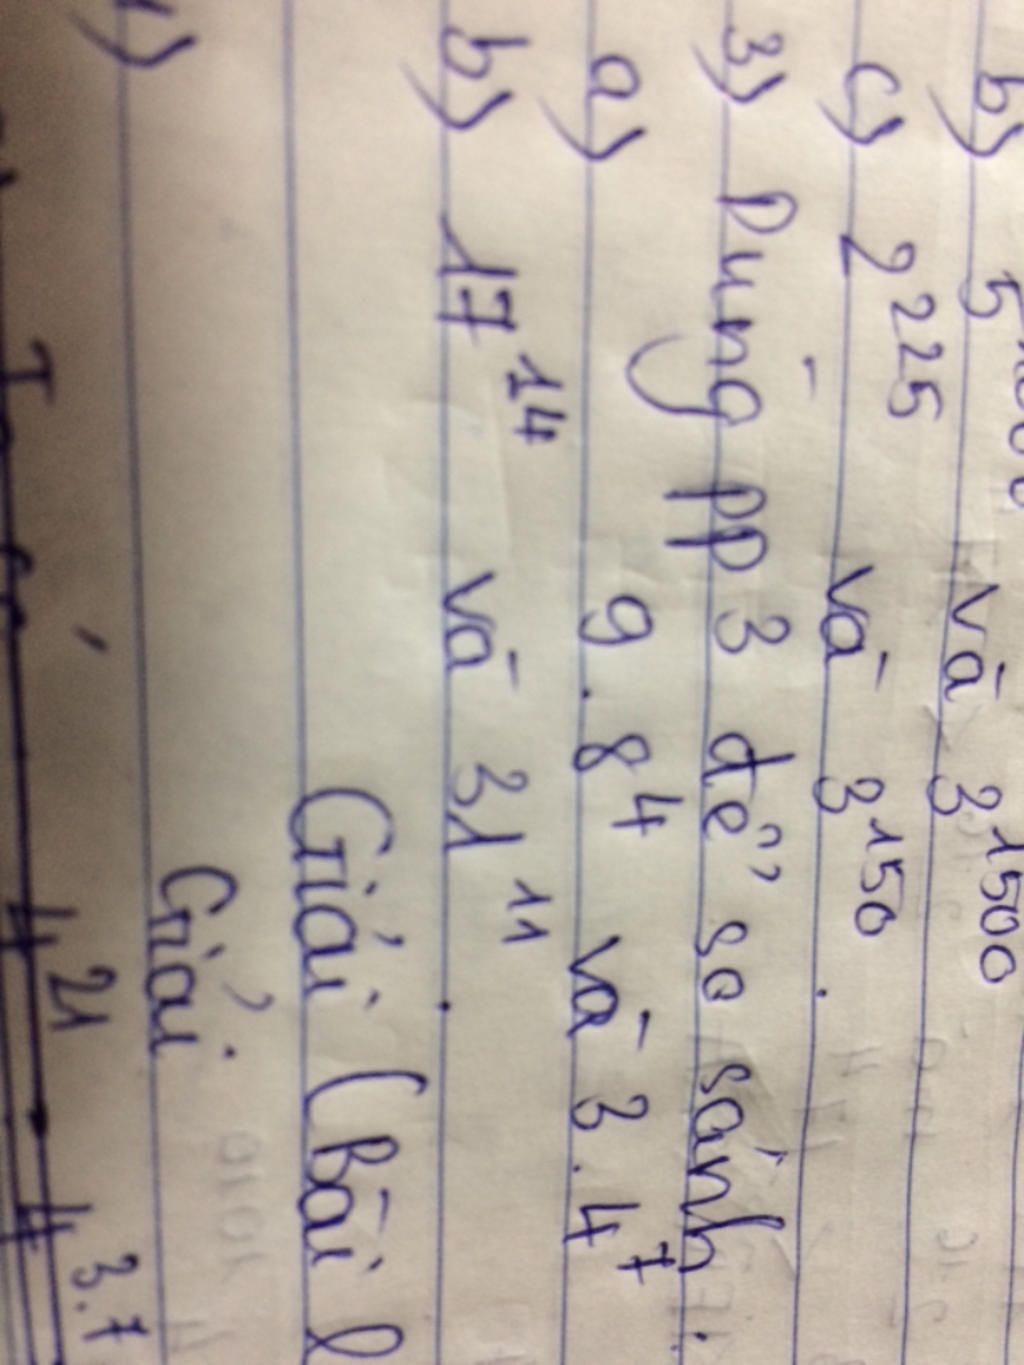 b) 5 và 3^1500
c) 2^225 và 3^150.
3) Dùng pp 3 để so sánh.
a) 9.8^4 và 3.4^7
b) 17^14 và 31^11.
Giải (Bài
Giải.
1)
4^21 4^3.7